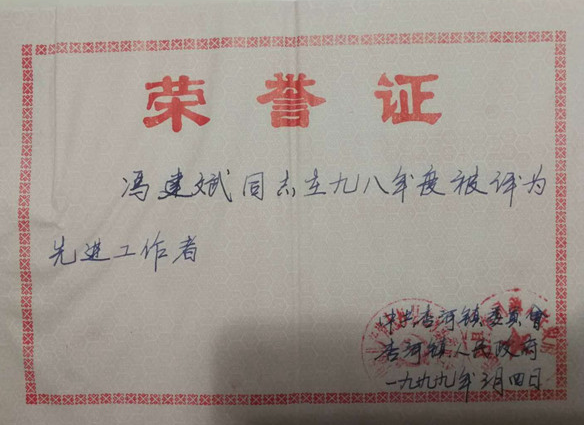 荣誉证
冯建斌同志在九八年度被评为
先进工作者
中共杏河镇委员会
杏河镇人民政府
一九九九年三月四日